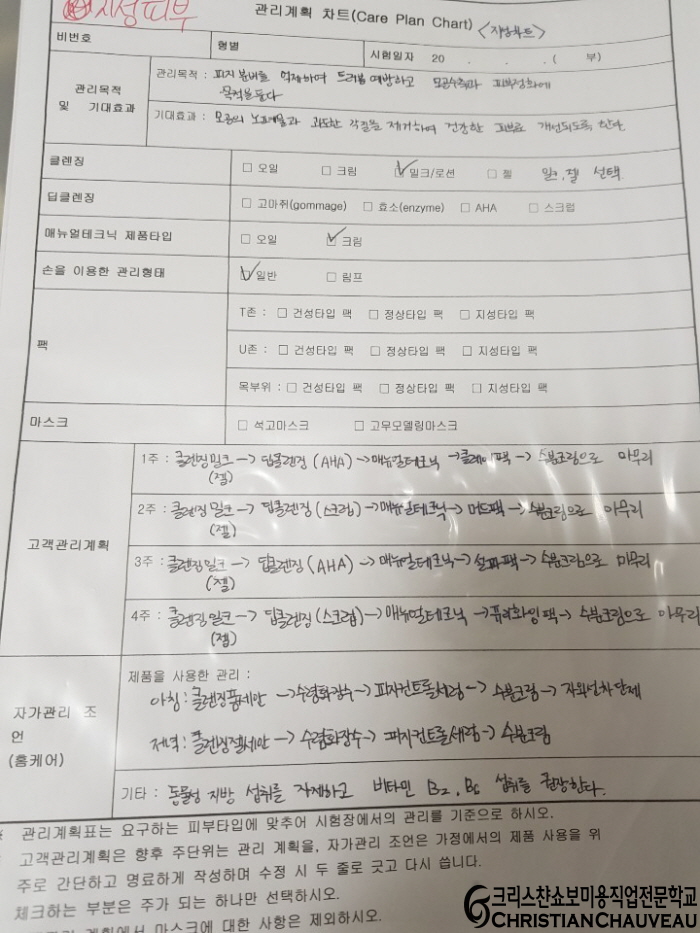 지성피부
관리계획 차트(Care Plan Chart) <지성차트>
비번호 형별 시험일자 20 . . . ( 부)
관리목적 및 기대효과
관리목적 : 피지 분비를 억제하여 트러블 예방하고 모공수축과 피부정화에
목적을 둔다
기대효과 : 모공의 노폐물과 과도한 각질을 제거하여 건강한 피부로 개선되도록 한다.
클렌징 □ 오일 □ 크림 ☑ 밀크/로션 □ 젤 밀크, 젤 선택
딥클렌징 □ 고마쥐(gommage) □ 효소(enzyme) □ AHA □ 스크럽
매뉴얼테크닉 제품타입 □ 오일 ☑ 크림
손을 이용한 관리형태 ☑ 일반 □ 림프
팩
T존 : □ 건성타입 팩 □ 정상타입 팩 □ 지성타입 팩
U존 : □ 건성타입 팩 □ 정상타입 팩 □ 지성타입 팩
목부위 : □ 건성타입 팩 □ 정상타입 팩 □ 지성타입 팩
마스크 □ 석고마스크 □ 고무모델링마스크
고객관리계획
1주 : 클렌징밀크 -> 딥클렌징(AHA) -> 매뉴얼테크닉 -> 클레이팩 -> 수분크림으로 마무리
(젤)
2주 : 클렌징밀크 -> 딥클렌징(스크럽) -> 매뉴얼테크닉 -> 머드팩 -> 수분크림으로 마무리
(젤)
3주 : 클렌징밀크 -> 딥클렌징(AHA) -> 매뉴얼테크닉 -> 설파팩 -> 수분크림으로 마무리
(젤)
4주 : 클렌징밀크 -> 딥클렌징(스크럽) -> 매뉴얼테크닉 -> 퓨리화잉팩 -> 수분크림으로 마무리
(젤)
자가관리 조언
(홈케어)
제품을 사용한 관리 :
아침 : 클렌징폼세안 -> 수렴화장수 -> 피지컨트롤세럼 -> 수분크림 -> 자외선차단제
저녁 : 클렌징젤세안 -> 수렴화장수 -> 피지컨트롤세럼 -> 수분크림
기타 : 동물성 지방 섭취를 자제하고 비타민 B2, B6 섭취를 권장한다.
관리계획표는 요구하는 피부타입에 맞추어 시험장에서의 관리를 기준으로 하시오.
고객관리계획은 향후 주단위는 관리 계획을, 자가관리 조언은 가정에서의 제품 사용을 위
주로 간단하고 명료하게 작성하며 수정 시 두 줄로 긋고 다시 씁니다.
체크하는 부분은 주가 되는 하나만 선택하시오.
계획에서 마스크에 대한 사항은 제외하시오.
크리스챤쇼보미용직업전문학교
CHRISTIAN CHAUVEAU